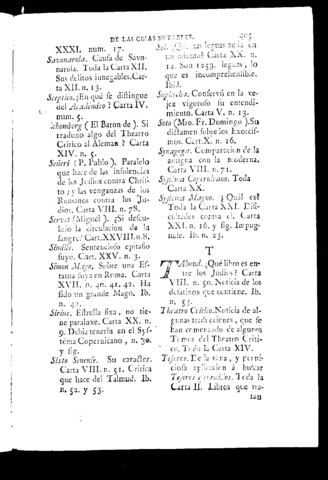 DE LAS COSAS NOTABLES. 405
XXXI. num. 17.
Savonarola. Causa de Savo-
narola. Toda la Carta XII.
Sus delitos innegables. Car-
ta XII. n. 13.
Sceptico. ¿En qué se distingue
del Acatalentico? Carta IV.
num. 5.
Schomberg (El Baron de). Si
traduxo algo del Theatro
Critico al Aleman? Carta
XIV. n. 5.
Señeri (P. Pablo). Paralelo
que hace de las insolencias
de los Judios contra Chris-
to y las venganzas de los
Romanos contra los Ju-
dios. Carta VIII. n. 78.
Servet (Miguél). ¿Si descu-
brio la circulacion de la
sangre? Cart. XXVIII. n. 8.
Similis. Sentencioso epitafio
suyo. Cart. XXV. n. 3.
Simon Mago. Sobre una Es-
tatua suya en Roma. Carta
XVII. n. 40. 41. 42. Ha
sido un grande Mago. Ib.
n. 42.
Sirius, Estrella fixa, no tie-
ne paralaxe. Carta XX. n.
9. Debia tenerla en el Sys-
tema Copernicano, n. 30.
y sig.
Sixto Senense. Su caracter.
Carta VIII. n. 51. Critica
que hace del Talmud. Ib.
n. 52. y 53.
Sol. ¿Quantas leguas anda en
un minuto? Carta XX. n.
12. Son 1253. leguas, lo
que es incomprehensible.
Ibid.
Sophocles. Conservó en la ve-
jez vigoroso su entendi-
miento. Carta V. n. 13.
Soto (Mro. Fr. Domingo). Su
dictamen sobre los Exorcis-
mos. Cart. X. n. 16.
Synagoga. Comparacion de la
antigua con la moderna.
Carta VIII. n. 71.
Systema Copernicano. Toda
Carta XX.
Systema Magno. ¿Qual es?
Toda la Carta XXI. Difi-
cultades contra el. Carta
XXI. n. 16. y sig. Impug-
nate. Ib. n. 23.
T
Talmud. ¿Qué libro es en-
tre los Judios? Carta
VIII. n. 50. Noticia de los
delatinos que contiene. Ib.
n. 53.
Theatro Critico. Noticia de al-
gunas traducciones, que se
han comenzado de algunos
Tomos del Theatro Criti-
co. Toda la Carta XIV.
Tesoros. De la vana, y perni-
ciosa aplicacion á buscar
Tesoros escondidos. Toda la
Carta II. Libros que tra-
tan